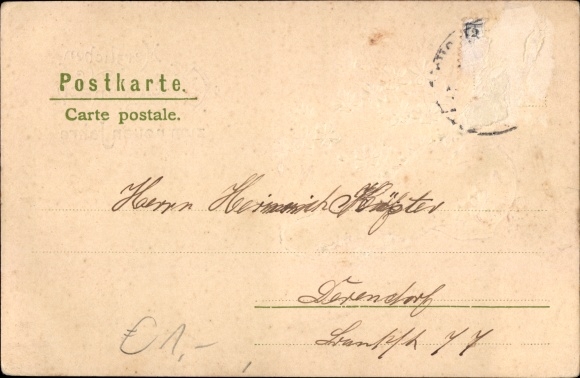 Postkarte.
Carte postale.
Herrn Heinrich Küpster
Derendorf
77
€ 1,-